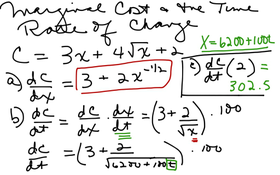 Marginal Cost & the Time
Rate of Change
C = 3x + 4√x + 2
X = 6200 + 100t
a) dC/dx = 3 + 2x^(-1/2)
c) dC/dt (2) =
302.5
b) dC/dt = dC/dx · dx/dt = (3 + 2/√x) · 100
dC/dt = (3 + 2/√(6200 + 100t)) · 100